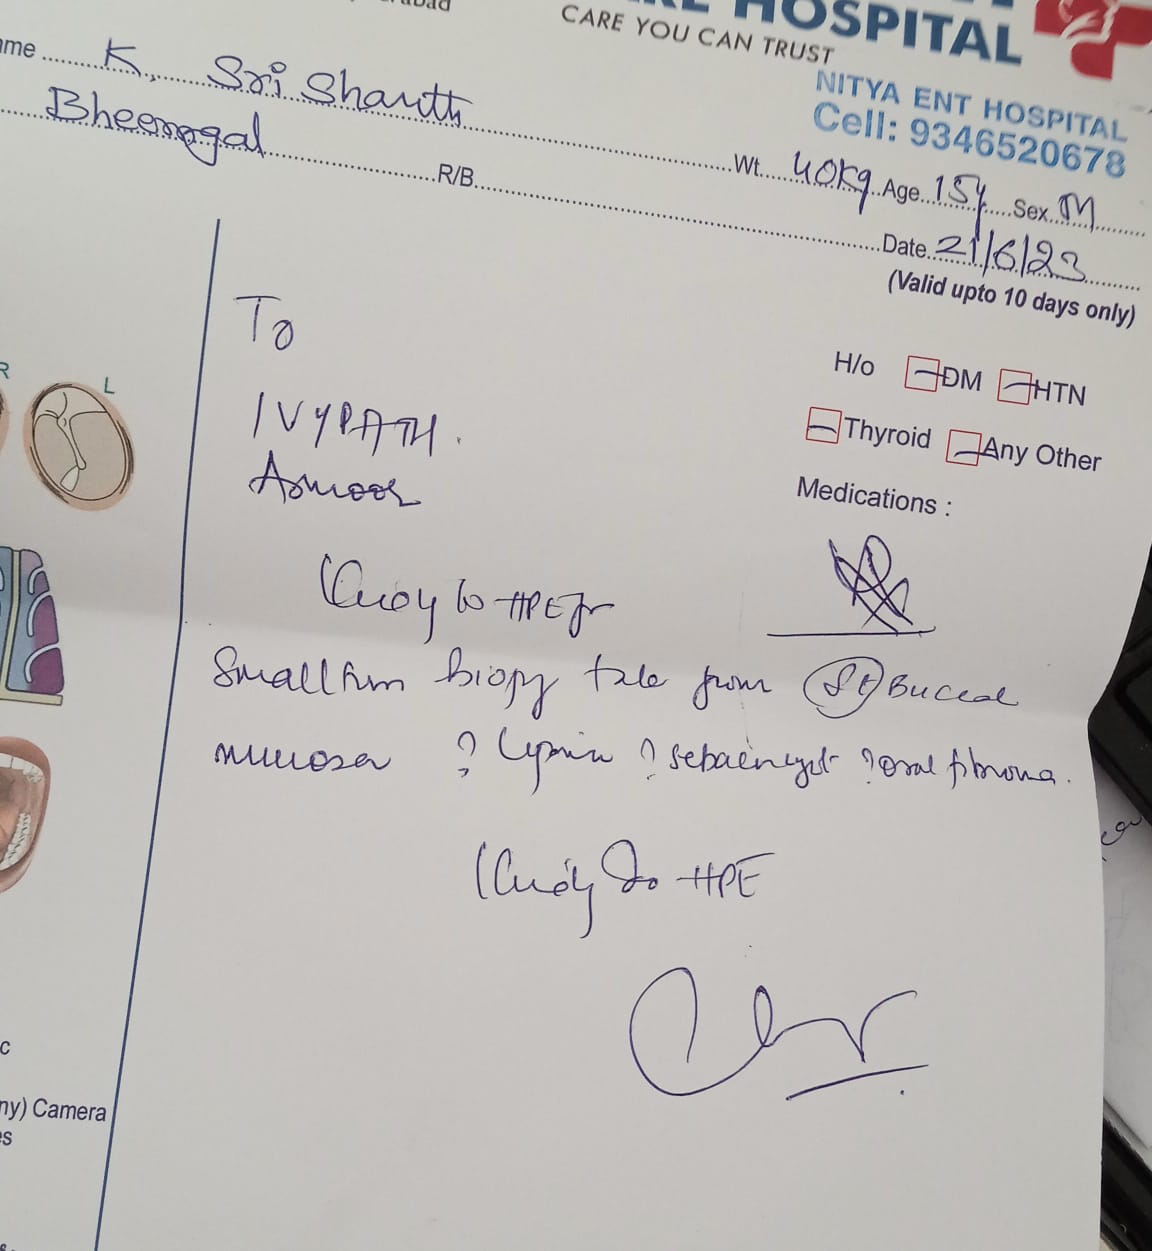 HOSPITAL
CARE YOU CAN TRUST
NITYA ENT HOSPITAL
Cell: 9346520678
K. Sri Shanth
Bheemgal
R/B
Wt. 40kg Age 15y Sex M
Date 21/6/23
(Valid upto 10 days only)
To
H/o DM HTN
Thyroid Any Other
Medications :
R L
IVYPATH.
Armoor
Kindly to HPE for
Small biopsy from Buccal
mucosa ? ? ? oral fibroma.
Kindly Do HPE
Camera